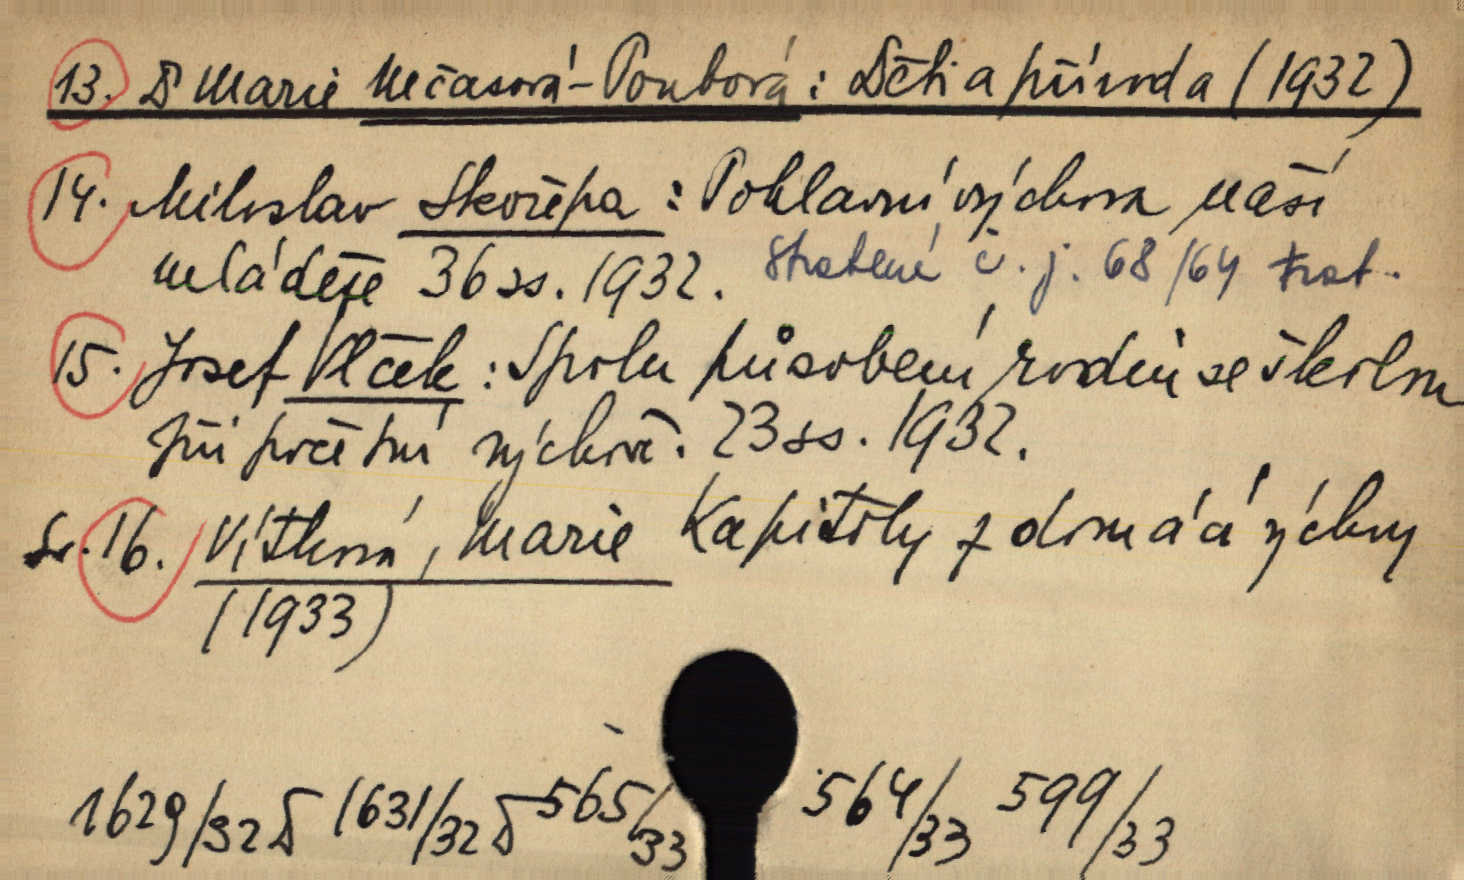 13. Dr Marie Nečasová-Poubová: Děti a příroda (1932)
14. Miloslav Skořepa: Pohlavní výchova naší
mládeže 36 ss. 1932. Stratené č. j. 68/64 trat.
15. Josef Vlček: Spolu působení rodin se školou
při početní výchově. 23 ss. 1932.
Sv. 16. Vítková, Marie Kapitoly z domácí výchovy
(1933)
1629/32 D 1631/32 D 565/33 564/33 599/33